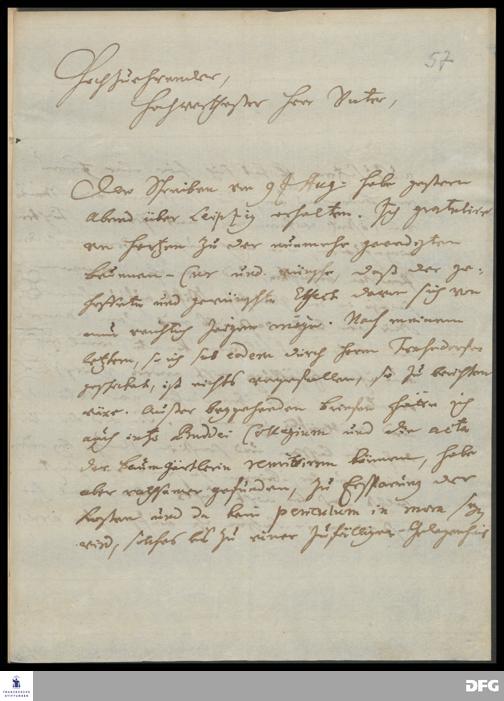 57
Hochzuehrender,
Hochwerthester Herr Vater,
Dero Schreiben vom 9t Aug. habe gestern
Abend über Leipzig erhalten. Ich gratulire
von Hertzen zu der nunmehr geendigten
Brunnen-Cur und wünsche, daß der ge-
hoffete und gewünschte Effect davon sich von
nun reichlich zeigen möge. Nach meinem
letztern, so ich sub eodem durch Herrn
geschicket, ist nichts vorgefallen, so zu berichten
wäre. Außer beygehenden Briefen hätte ich
auch Buddei Collegium und die acta
der Baumgärtlerin remittiren können, habe
aber rathsamer gefunden, zu Ersparung der
Kosten und da kein periculum in mora seyn
wird, solches bis zu einer zufälligen Gelegenheit
FRANCKESCHE STIFTUNGEN
DFG